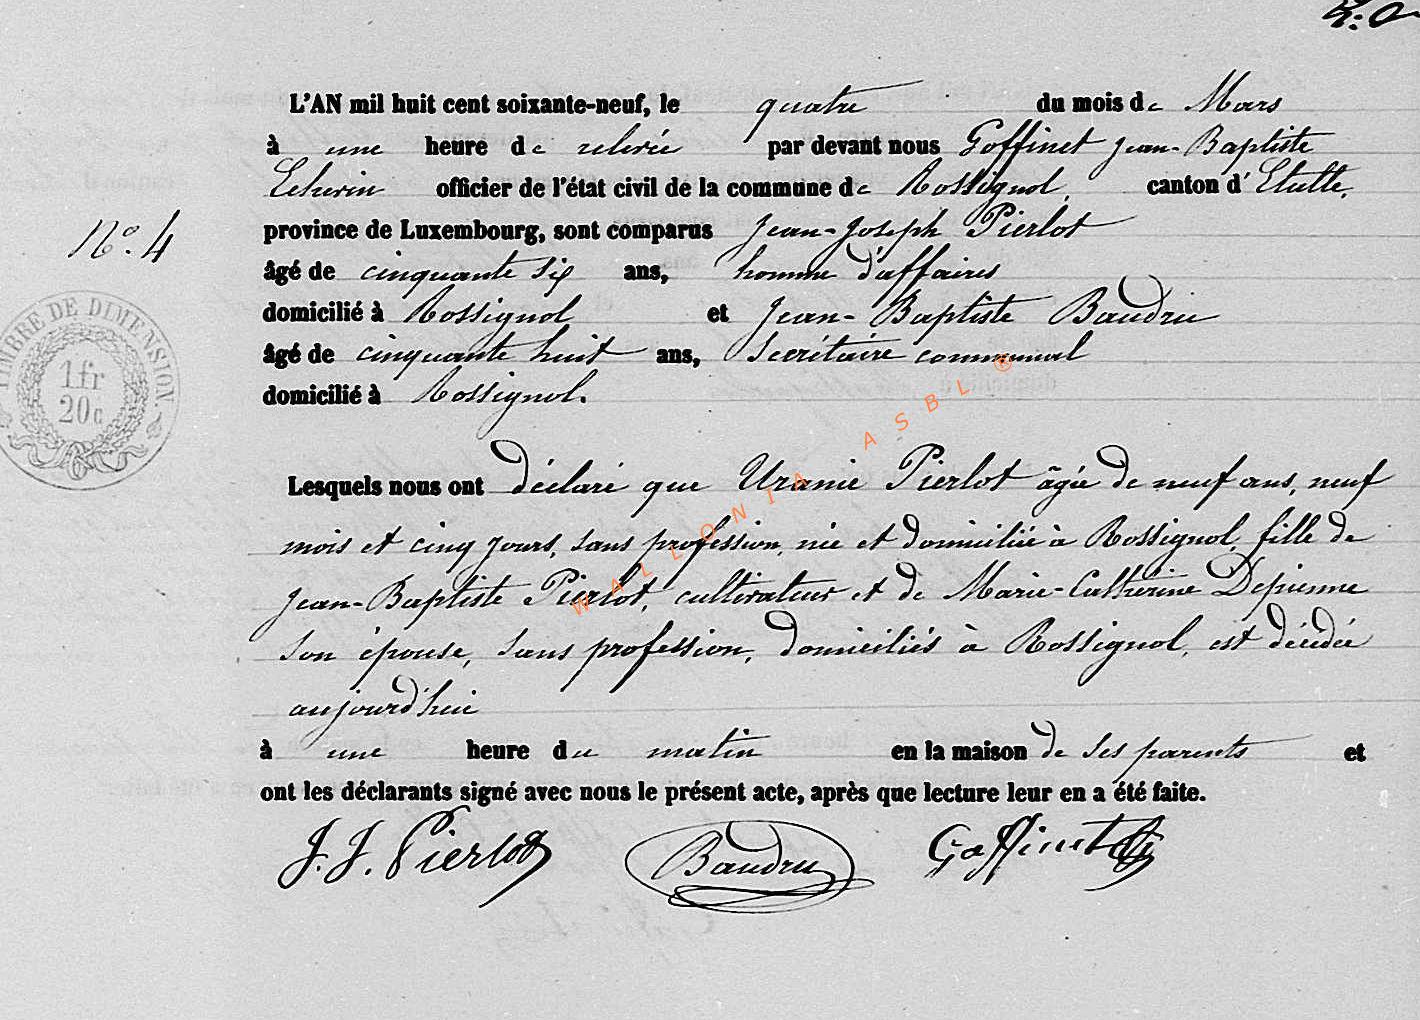 L'AN mil huit cent soixante-neuf, le quatre du mois de Mars
à une heure de relevée par devant nous Goffinet Jean-Baptiste
Echevin officier de l'état civil de la commune de Rossignol, canton d'Etalle,
province de Luxembourg, sont comparus Jean-Joseph Pierlot
N° 4
âgé de cinquante six ans, homme d'affaires
domicilié à Rossignol et Jean-Baptiste Baudru
âgé de cinquante huit ans, Secrétaire communal
domicilié à Rossignol.
TIMBRE DE DIMENSION.
1 fr
20 c
Lesquels nous ont déclaré que Uranie Pierlot âgée de neuf ans, neuf
mois et cinq jours, sans profession, née et domiciliée à Rossignol, fille de
Jean-Baptiste Pierlot, cultivateur et de Marie-Catherine Depienne
son épouse, sans profession, domiciliés à Rossignol, est décédée
aujourd'hui
à une heure du matin en la maison de ses parents et
ont les déclarants signé avec nous le présent acte, après que lecture leur en a été faite.
J. J. Pierlot Baudru Goffinet
WALLONIA ASBL ®